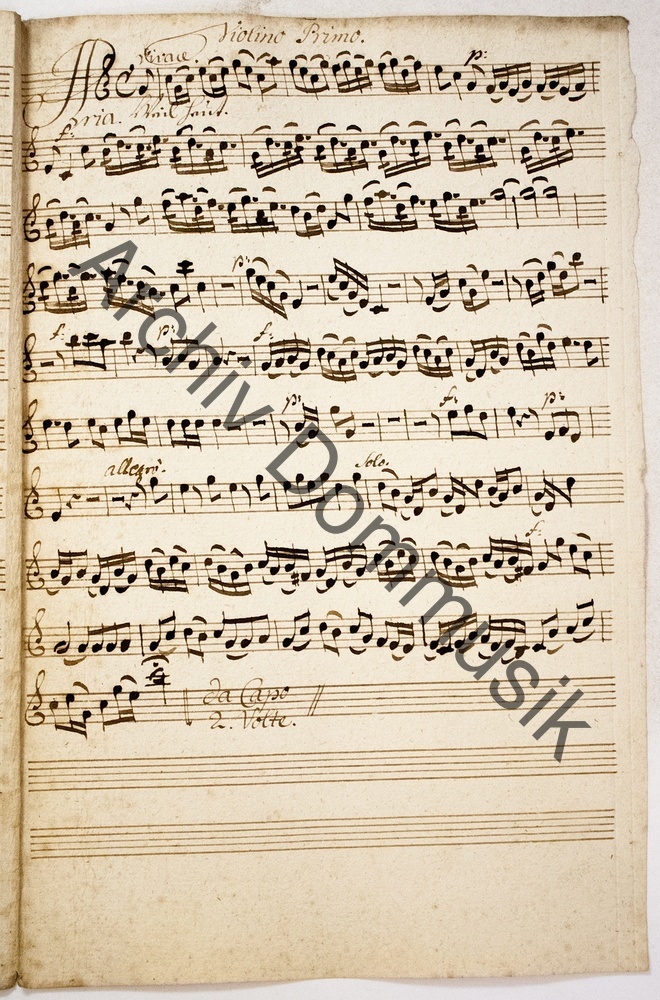 Violino Primo.
Vivace.
p:
Aria.
f:
p:
f:
p:
f:
p:
f:
p:
allegro.
Solo.
f:
da Capo
2. Volte.
Archiv Dommusik